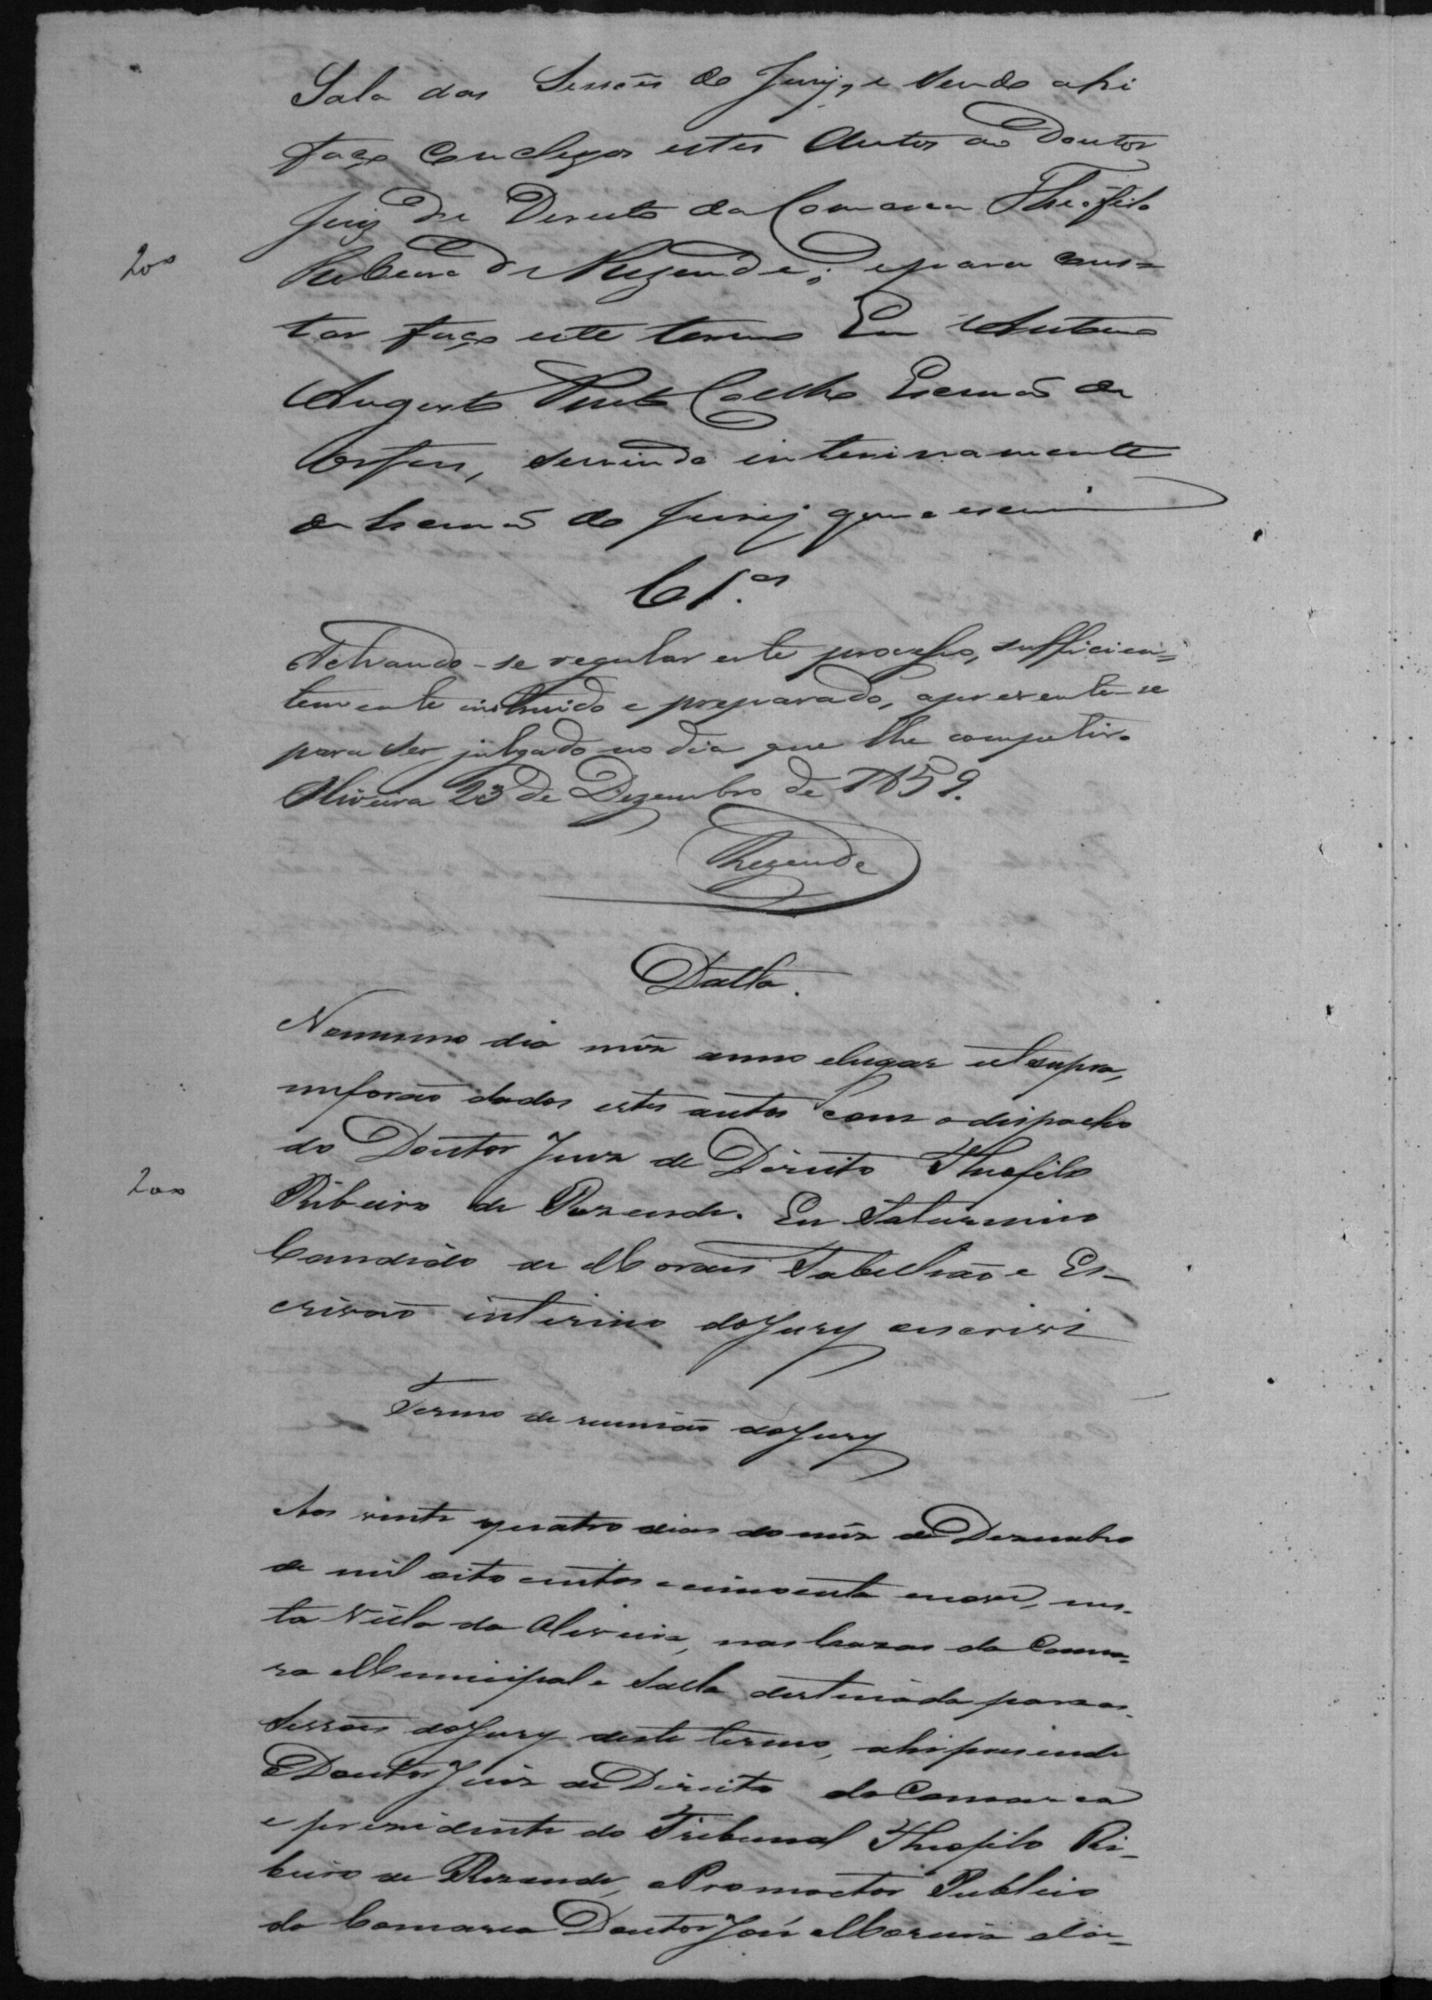 Sala das Sessões do Jury, e sendo ahi
faço conclusos estes Autos ao Doutor
Juiz de Direito da Comarca Theofilo
200
Ribeiro de Rezende; e para cons=
tar faço este termo Eu Antonio
Augusto Pinto Coelho Escrivão de
Orfãos, servindo interinamente
de Escrivão do Jury que o escrevi
Cl.os
Achando-se regular este processo, sufficien=
temente instruido e preparado, apresente-se
para ser julgado no dia que lhe competir.
Oliveira 23 de Dezembro de 1859.
Rezende
Datta.
No mesmo dia mêz anno elugar ut supra,
me forão dados estes autos com o dispacho
do Doutor Juiz de Direito Theofilo
200
Ribeiro de Rezende. Eu Saturnino
Candido de Moraes Tabellião e Es-
crivão interino do Jury o escrivi
Termo de reunião do Jury
Aos vinte quatro dias do mêz de Dezembro
de mil oito centos e cincoenta enove, nes-
ta Villa da Oliveira, nas Cazas da Cama-
ra Municipal e Salla destinada para as
Sessões do Jury deste termo, ahi presente
o Doutor Juiz de Direito da Comarca
e presidente do Tribunal Theofilo Ri-
beiro de Rezende, o Promoctor Publico
da Comarca Doutor José Moreira